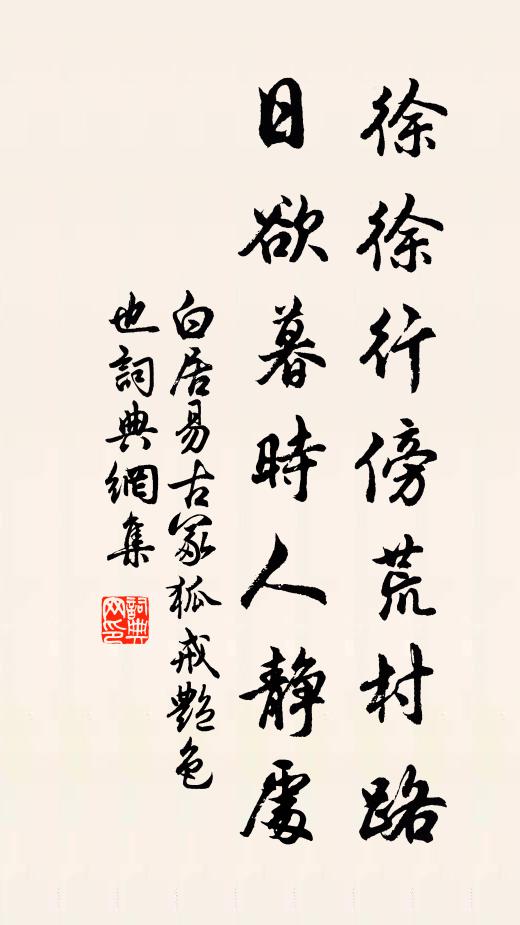 徐徐行傍荒村路
日欲暮時人静處
白居易古冢狐戒艷色
也詞典網集
詞典
网印